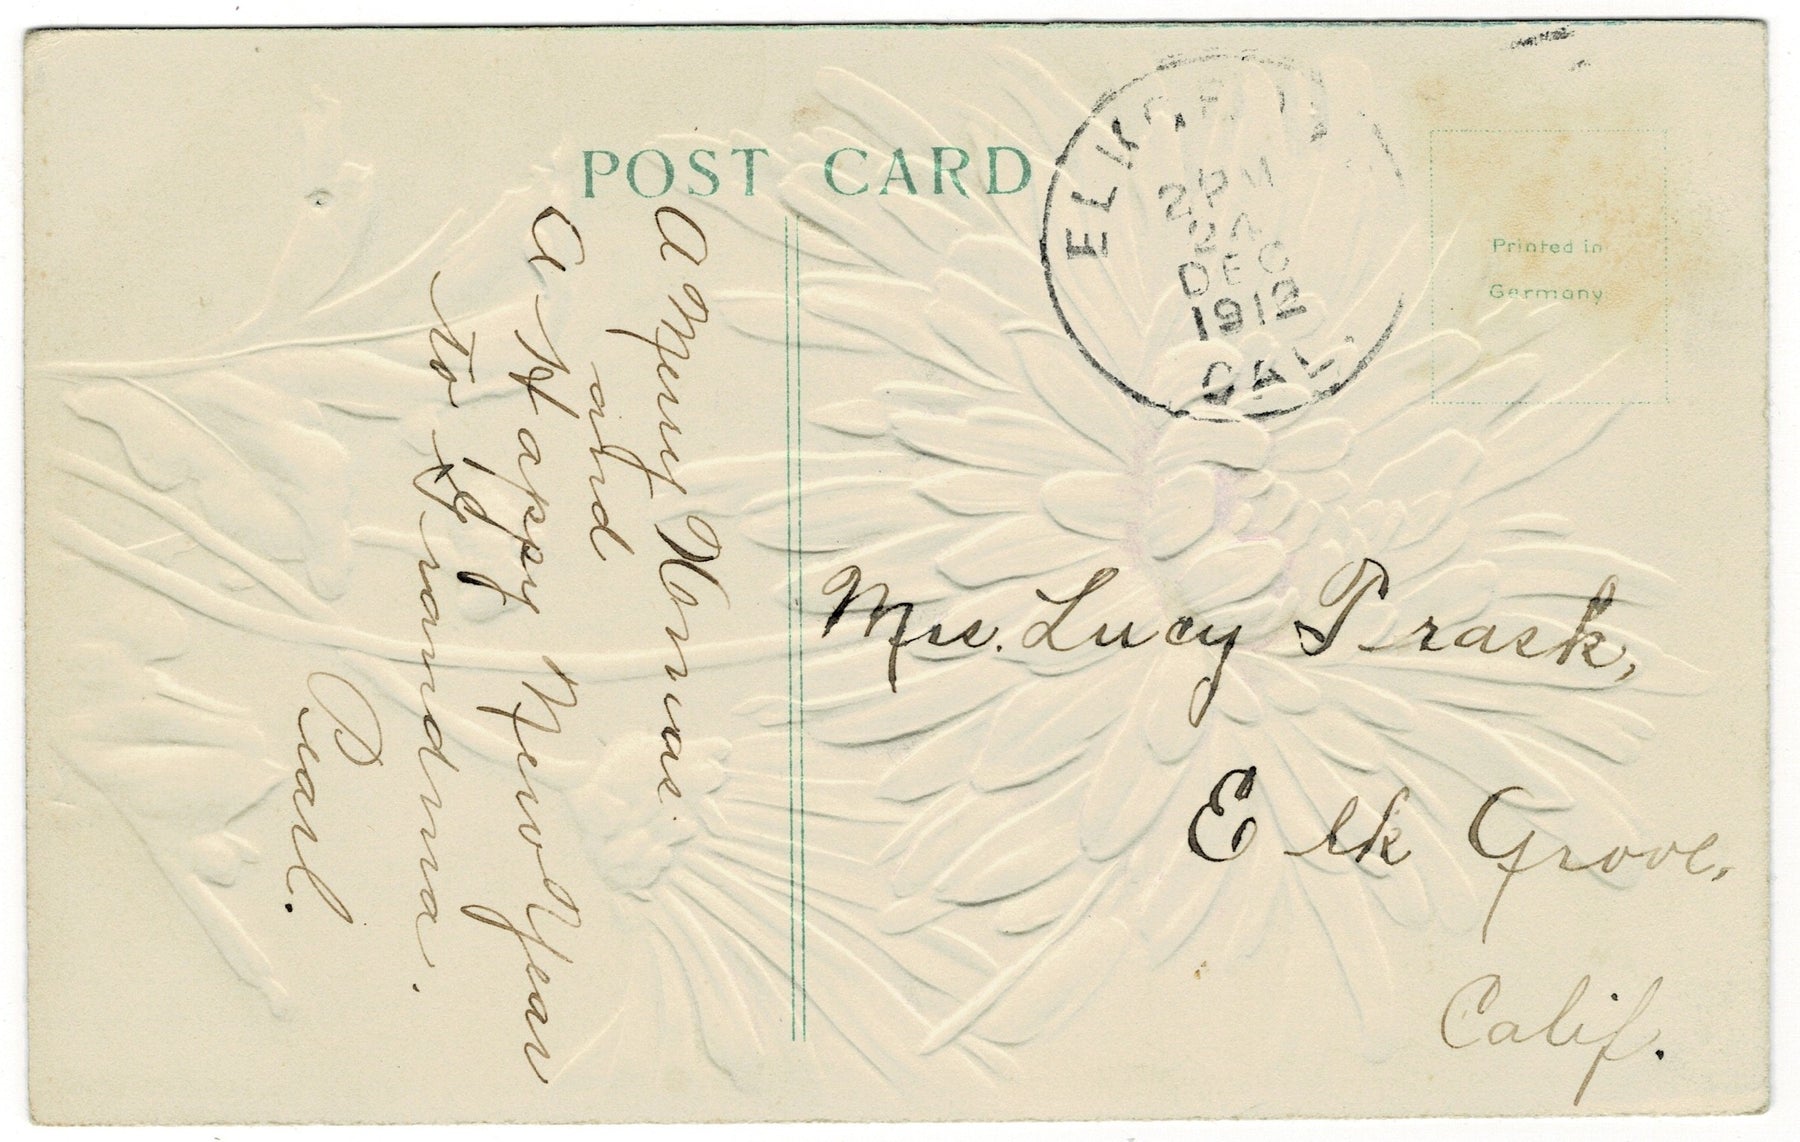 POST CARD
ELK GROVE
2 PM
24
DEC
1912
CAL.
Printed in
Germany
A Merry Xmas.
and
A Happy New Year
to Grandma.
Pearl.
Mrs. Lucy Trask,
Elk Grove,
Calif.